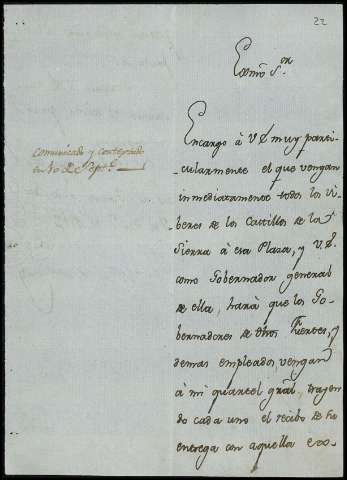 22
Exmo Sor
Comunicado y contextado
en 10 de Sepre
Encargo à V E muy parti-
cularmente el que vengan
inmediatamente todos los vi-
beres de los Castillos de la
Sierra à esa Plaza, y V.E.
como Gobernador general
de ella, hará que los Go-
bernadores de dhos Fuertes, y
demas empleados, vengan
à mi quartel gral, trayen-
do cada uno el recibo de su
entrega con aquella exs-